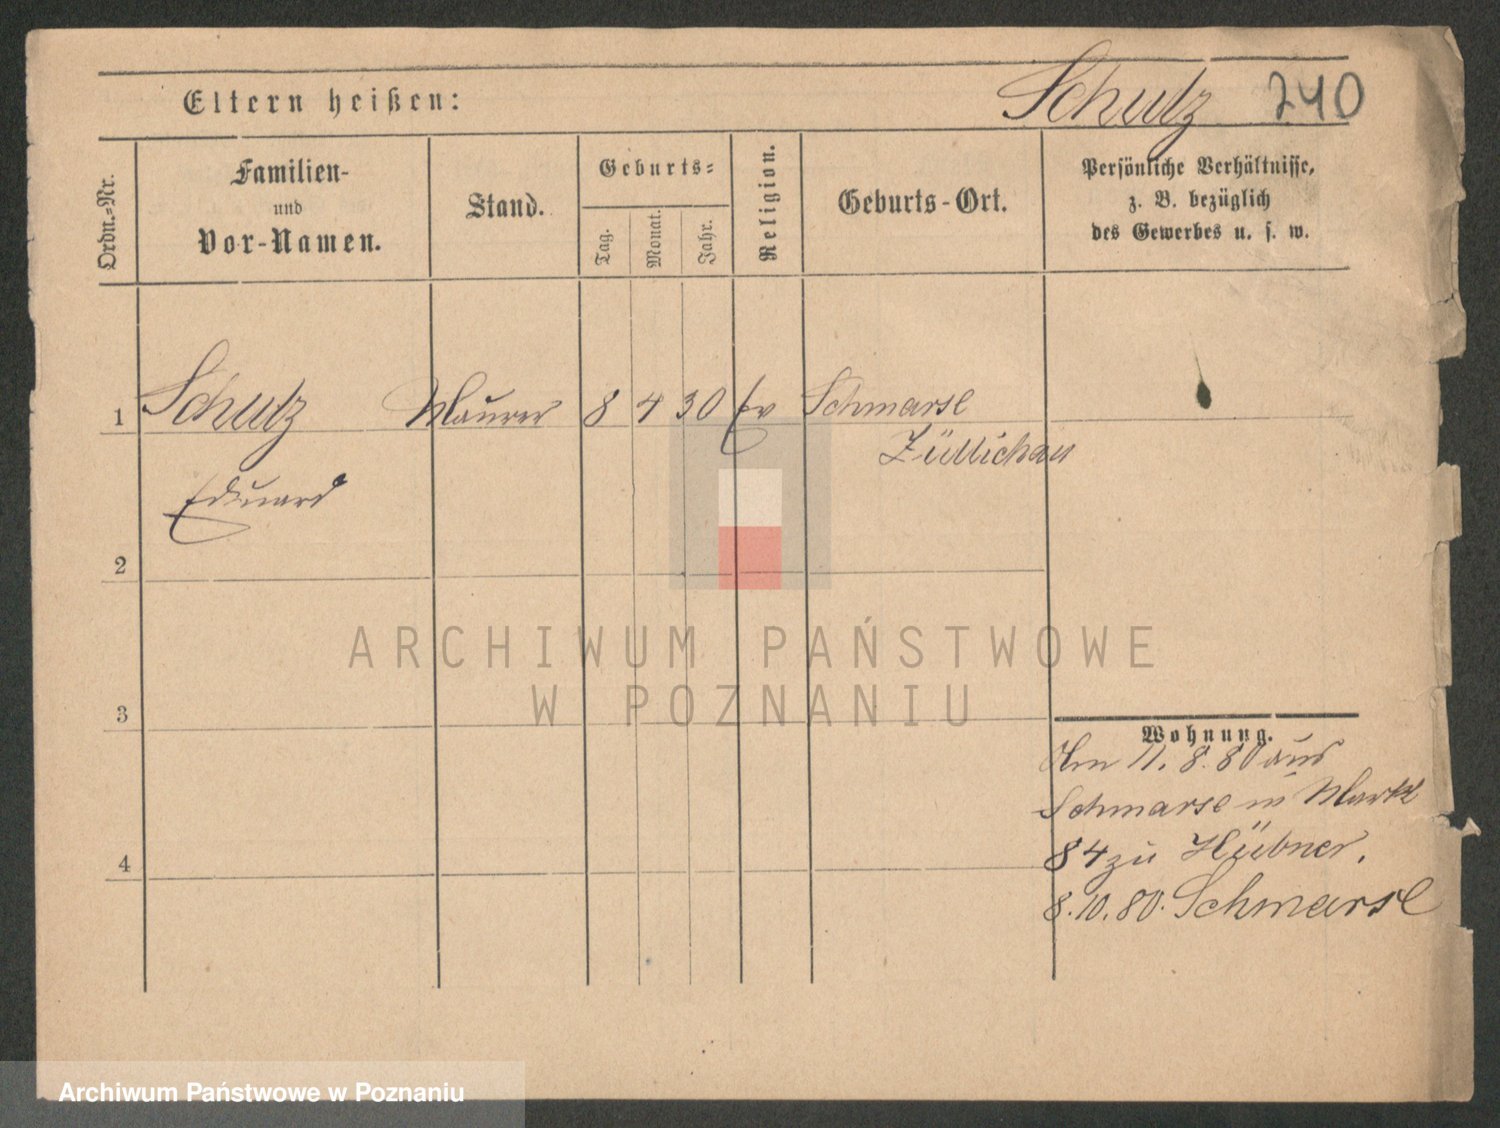 Eltern heißen:
Schulz 240
Ordn.-Nr.
Familien-
und
Vor-Namen.
Stand.
Geburts-
Tag.
Monat.
Jahr.
Religion.
Geburts-Ort.
Persönliche Verhältnisse,
z. B. bezüglich
des Gewerbes u. s. w.
1 Schulz Maurer 8 4 30 Ev Schmarse
Züllichau
Eduard
2
3
4
Wohnung.
Am 11. 8. 80 aus
Schmarse n Markt
84 zu Hübner.
8.10.80. Schmarse
ARCHIWUM PAŃSTWOWE
W POZNANIU
Archiwum Państwowe w Poznaniu